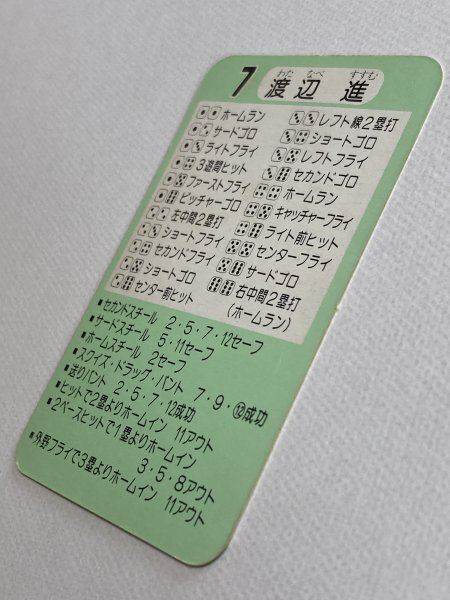 7 渡辺 進
わた なべ すすむ
⚀⚀ホームラン
⚀⚁サードゴロ
⚀⚂ライトフライ
⚀⚃3遊間ヒット
⚀⚄ファーストフライ
⚀⚅ピッチャーゴロ
⚁⚁左中間2塁打
⚁⚂ショートフライ
⚁⚃セカンドフライ
⚁⚄ショートゴロ
⚁⚅センター前ヒット
⚂⚂レフト線2塁打
⚂⚃ショートゴロ
⚂⚄レフトフライ
⚂⚅セカンドゴロ
⚃⚃ホームラン
⚃⚄キャッチャーフライ
⚃⚅ライト前ヒット
⚄⚄センターフライ
⚄⚅サードゴロ
⚅⚅右中間2塁打
(ホームラン)
■セカンドスチール 2・5・7・12セーフ
■サードスチール 5・11セーフ
■ホームスチール 2セーフ
■スクイズ・ドラッグ・バント 7・9・⑫成功
■送りバント 2・5・7・12成功
■ヒットで2塁よりホームイン 11アウト
■2ベースヒットで1塁よりホームイン
3・5・8アウト
■外野フライで3塁よりホームイン 11アウト